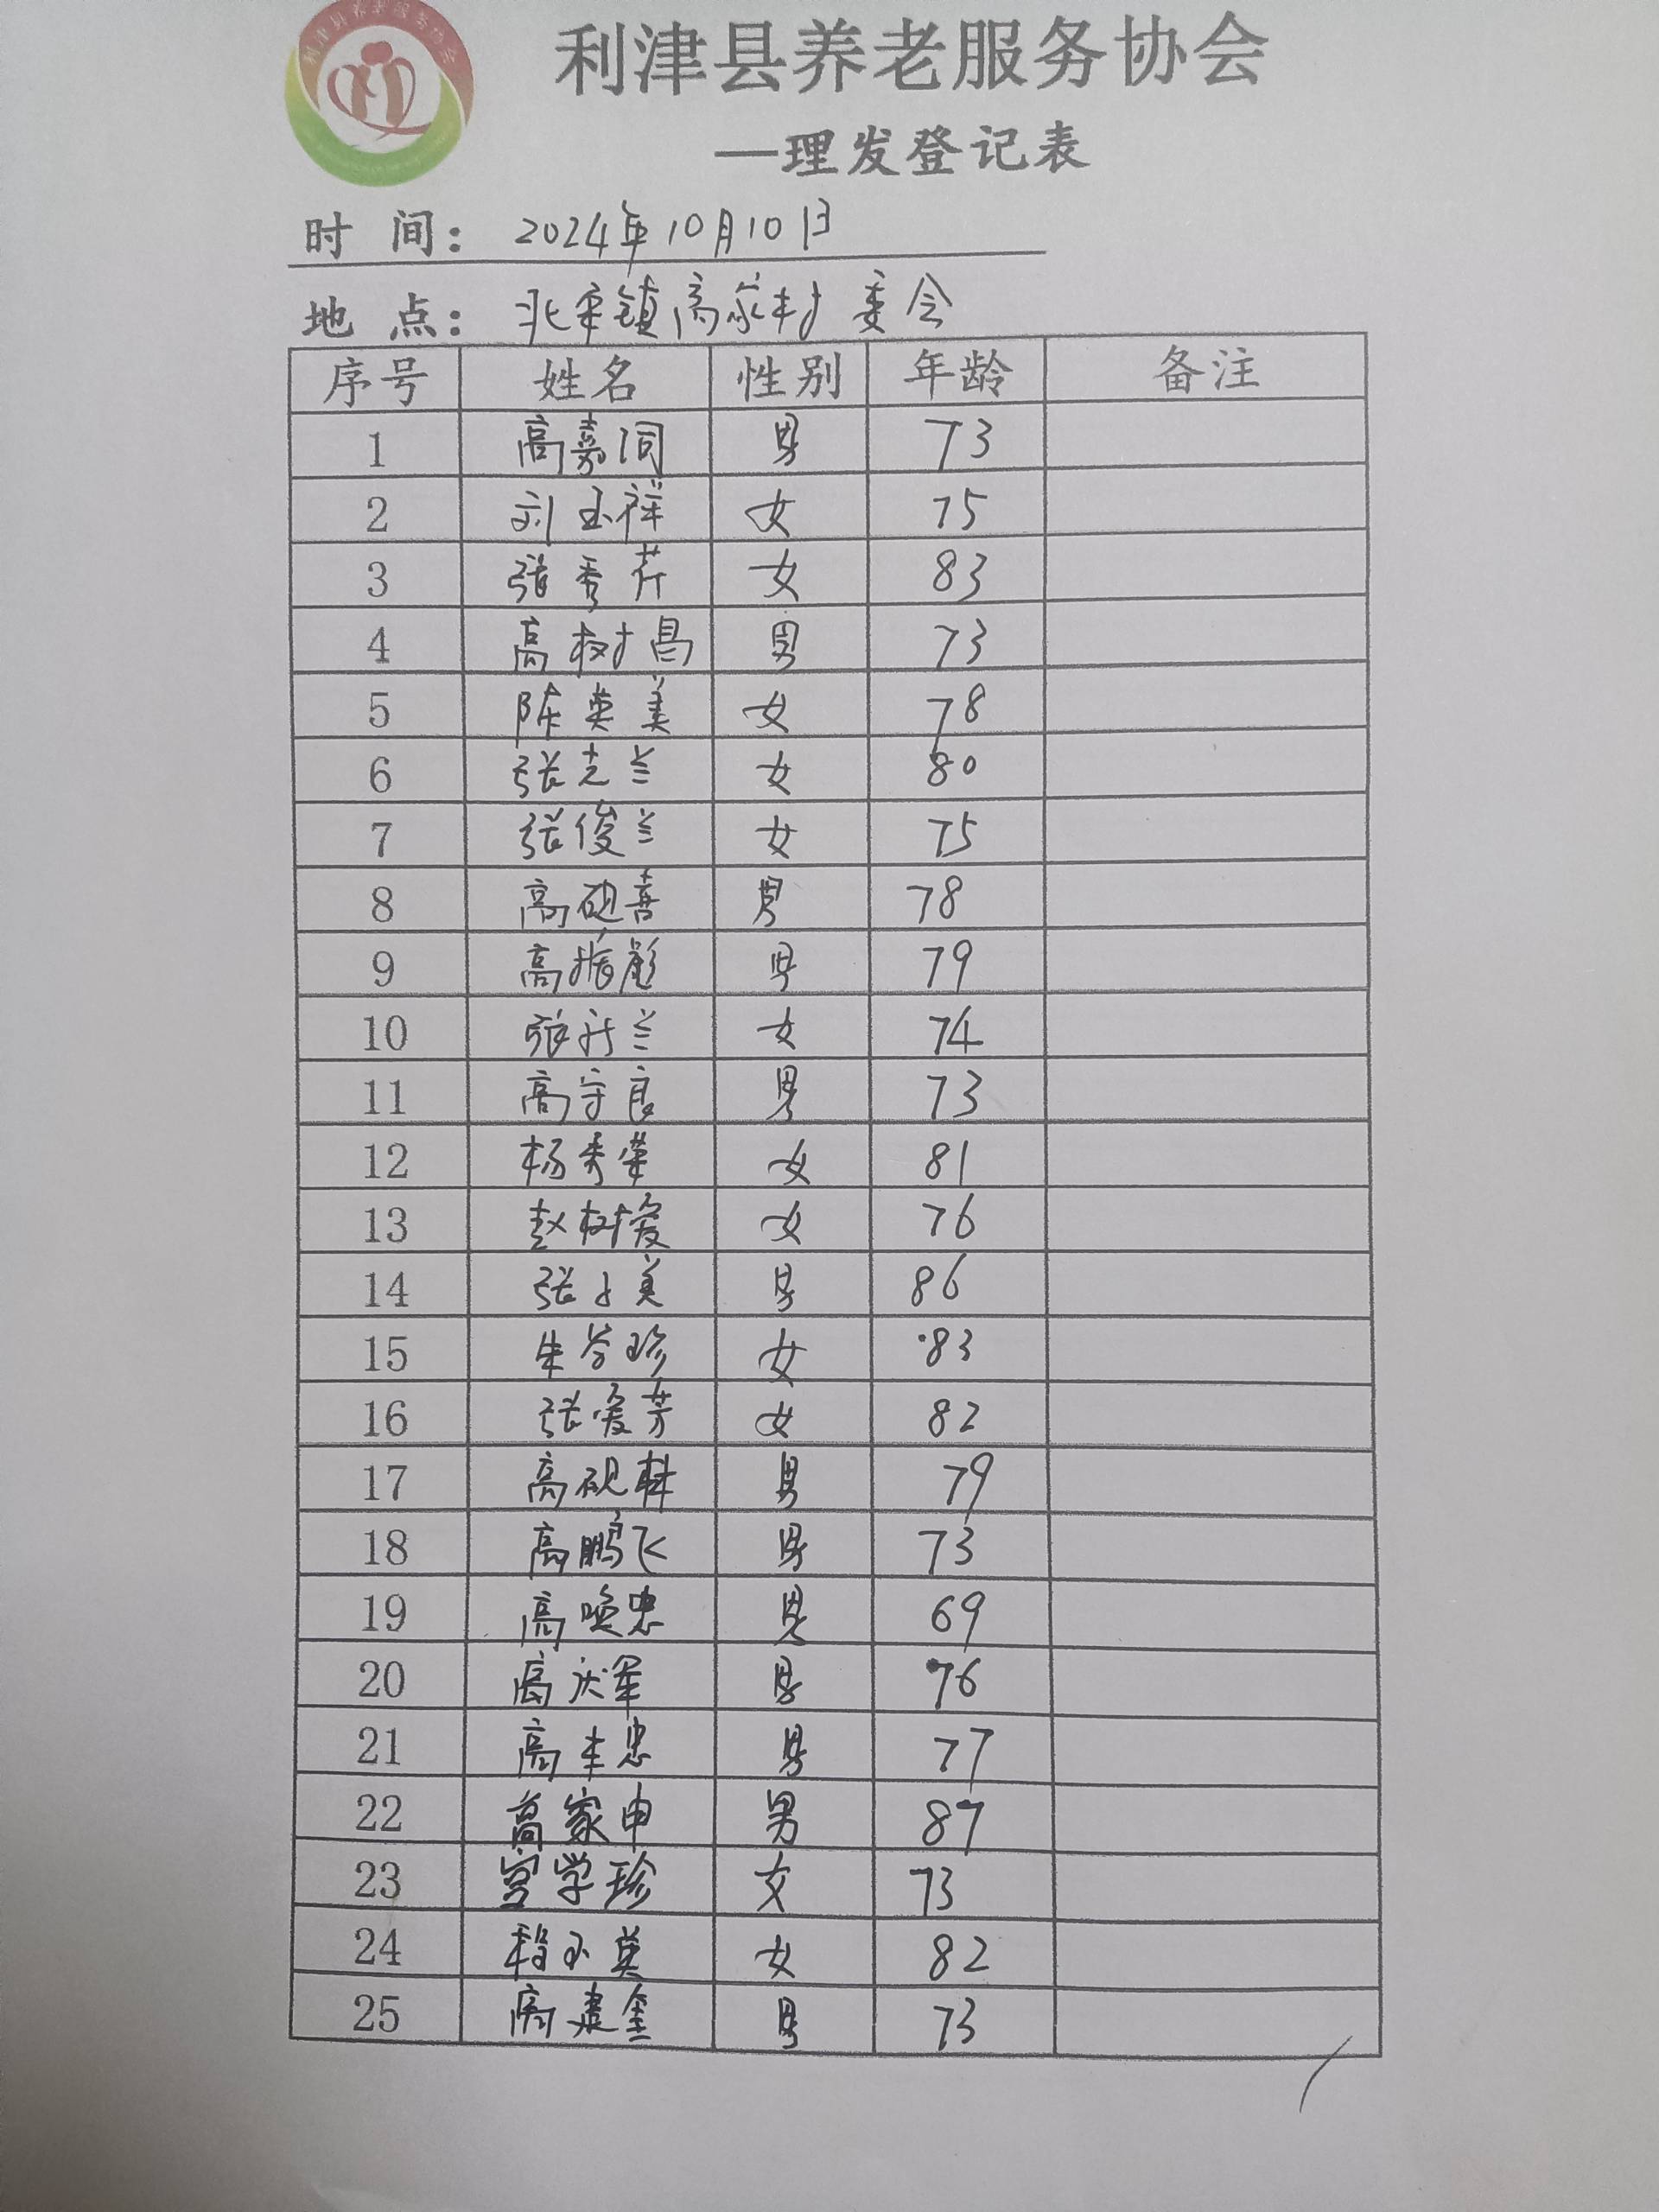 利津县养老服务协会
利津县养老服务协会
—理发登记表
时 间： 2024年10月10日
地 点： 北宋镇高家村委会
序号 姓名 性别 年龄 备注
1 高嘉润 男 73
2 刘玉祥 女 75
3 张秀芹 女 83
4 高树昌 男 73
5 陈英美 女 78
6 张志兰 女 80
7 张俊兰 女 75
8 高砚喜 男 78
9 高振彪 男 79
10 张新兰 女 74
11 高守良 男 73
12 杨秀荣 女 81
13 赵树爱 女 76
14 张 美 男 86
15 朱 珍 女 83
16 张爱芳 女 82
17 高砚 男 79
18 高鹏飞 男 73
19 高唤忠 男 69
20 高庆军 男 76
21 高丰忠 男 77
22 高家申 男 87
23 宫学珍 女 73
24 程玉英 女 82
25 高建 男 73